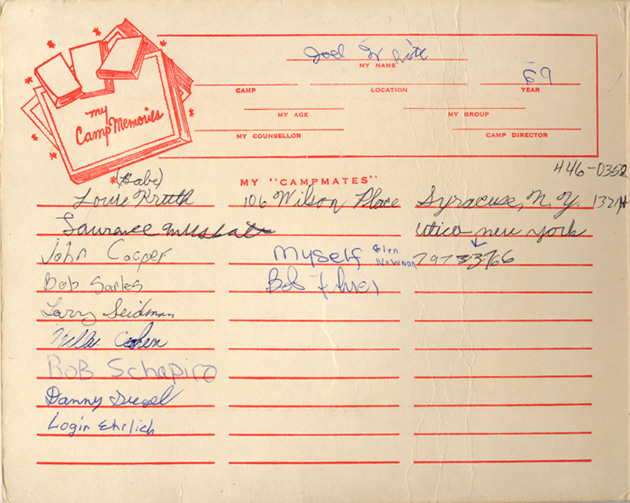 my
Camp Memories
Joel White
MY NAME
69
CAMP LOCATION YEAR
MY AGE MY GROUP
MY COUNSELLOR CAMP DIRECTOR
(Babe) MY "CAMPMATES" 446-0352
Louie Kruth 106 Wilson Place Syracuse, N.Y.
Laurance Utica-new york
John Cooper Myself Glen 797-3366
Bob Sarles Bob
Larry Seidman
Cohen
Rob Schapiro
Danny Siegel
Login Ehrlich